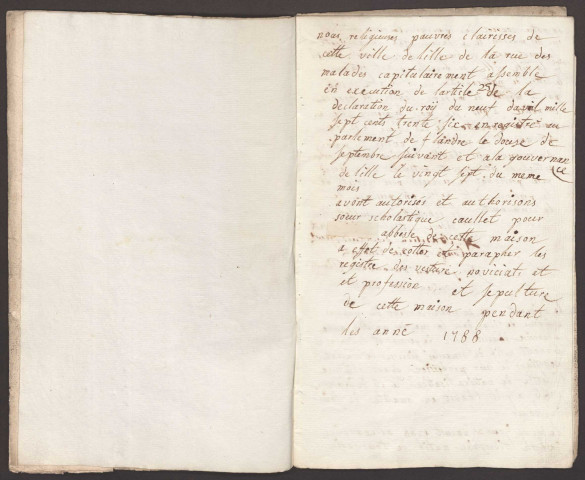 nous religieuses pauvres clairisses de
cette ville de lille de la rue des
malades capitulairement assemble
en execution de larticle 25 de la
declaration du roÿ du neuf davril mille
sept cents trente six enregistre au
parlement de flandre le douse de
septembre suivant et a la gouvernan
ce
de lille le vingt sept du meme
mois
avont autorisés et authorisons
soeur scholastique caullet pour
abbesse de cette maison
a effet de cotter et parapher les
registre des vesture noviciats et
et profession et sepulture
de cette maison pendant
les anné 1788